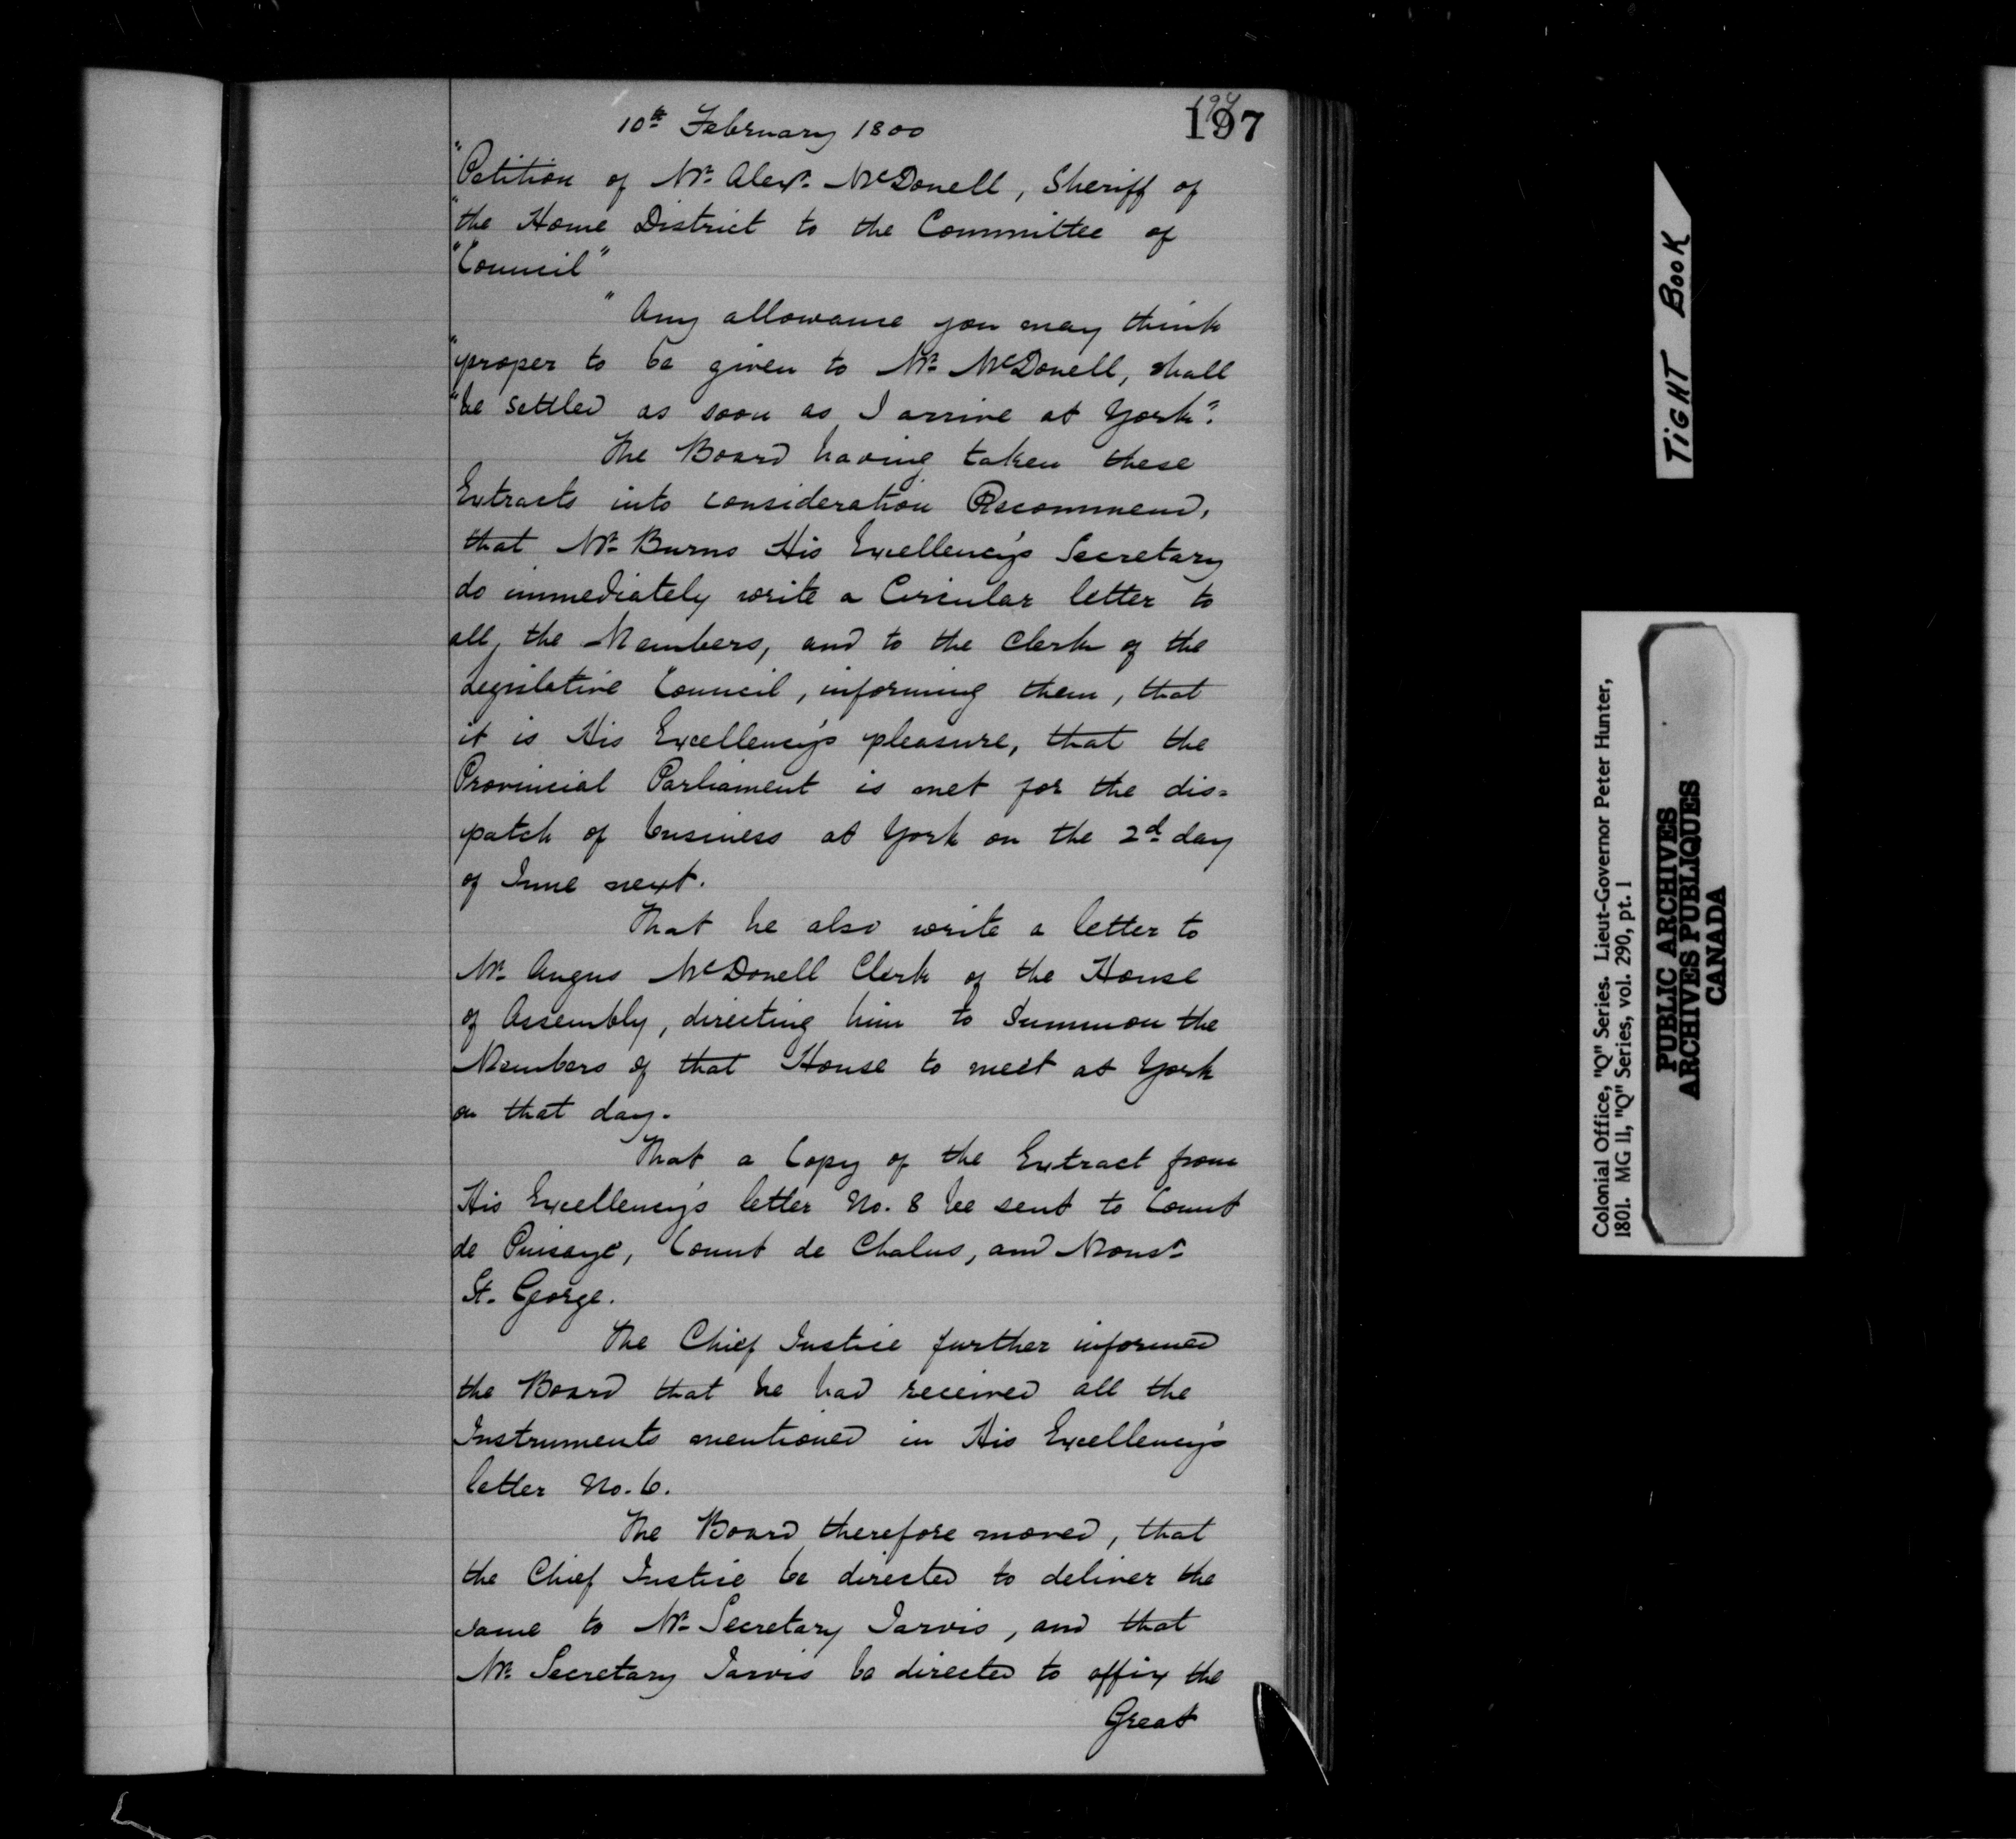 10th February 1800
197
"Petition of Mr. Alexr. McDonell, Sheriff of
"the Home District to the Committee of
"Council"
"Any allowance you may think
"proper to be given to Mr. McDonell, shall
"be settled as soon as I arrive at York".
The Board having taken these
Extracts into consideration Recommend,
that Mr. Burns His Excellency's Secretary
do immediately write a Circular letter to
all, the Members, and to the Clerk of the
Legislative Council, informing them, that
it is His Excellency's pleasure, that the
Provincial Parliament is met for the dis=
patch of business at York on the 2d day
of June next.
That he also write a letter to
Mr. Angus McDonell Clerk of the House
of Assembly, directing him to Summon the
Members of that House to meet at York
on that day.
That a Copy of the Extract from
His Excellency's letter No. 8 be sent to Count
de Puisaye, Count de Chalus, and Monsr.
St. George.
The Chief Justice further informed
the Board that he had received all the
Instruments mentioned in His Excellency's
letter No. 6.
The Board therefore moved, that
the Chief Justice be directed to deliver the
same to Mr. Secretary Jarvis, and that
Mr. Secretary Jarvis be directed to affix the
Great
TIGHT BOOK
Colonial Office, "Q" Series. Lieut-Governor Peter Hunter,
1801. MG 11, "Q" Series, vol. 290, pt. 1
PUBLIC ARCHIVES
ARCHIVES PUBLIQUES
CANADA